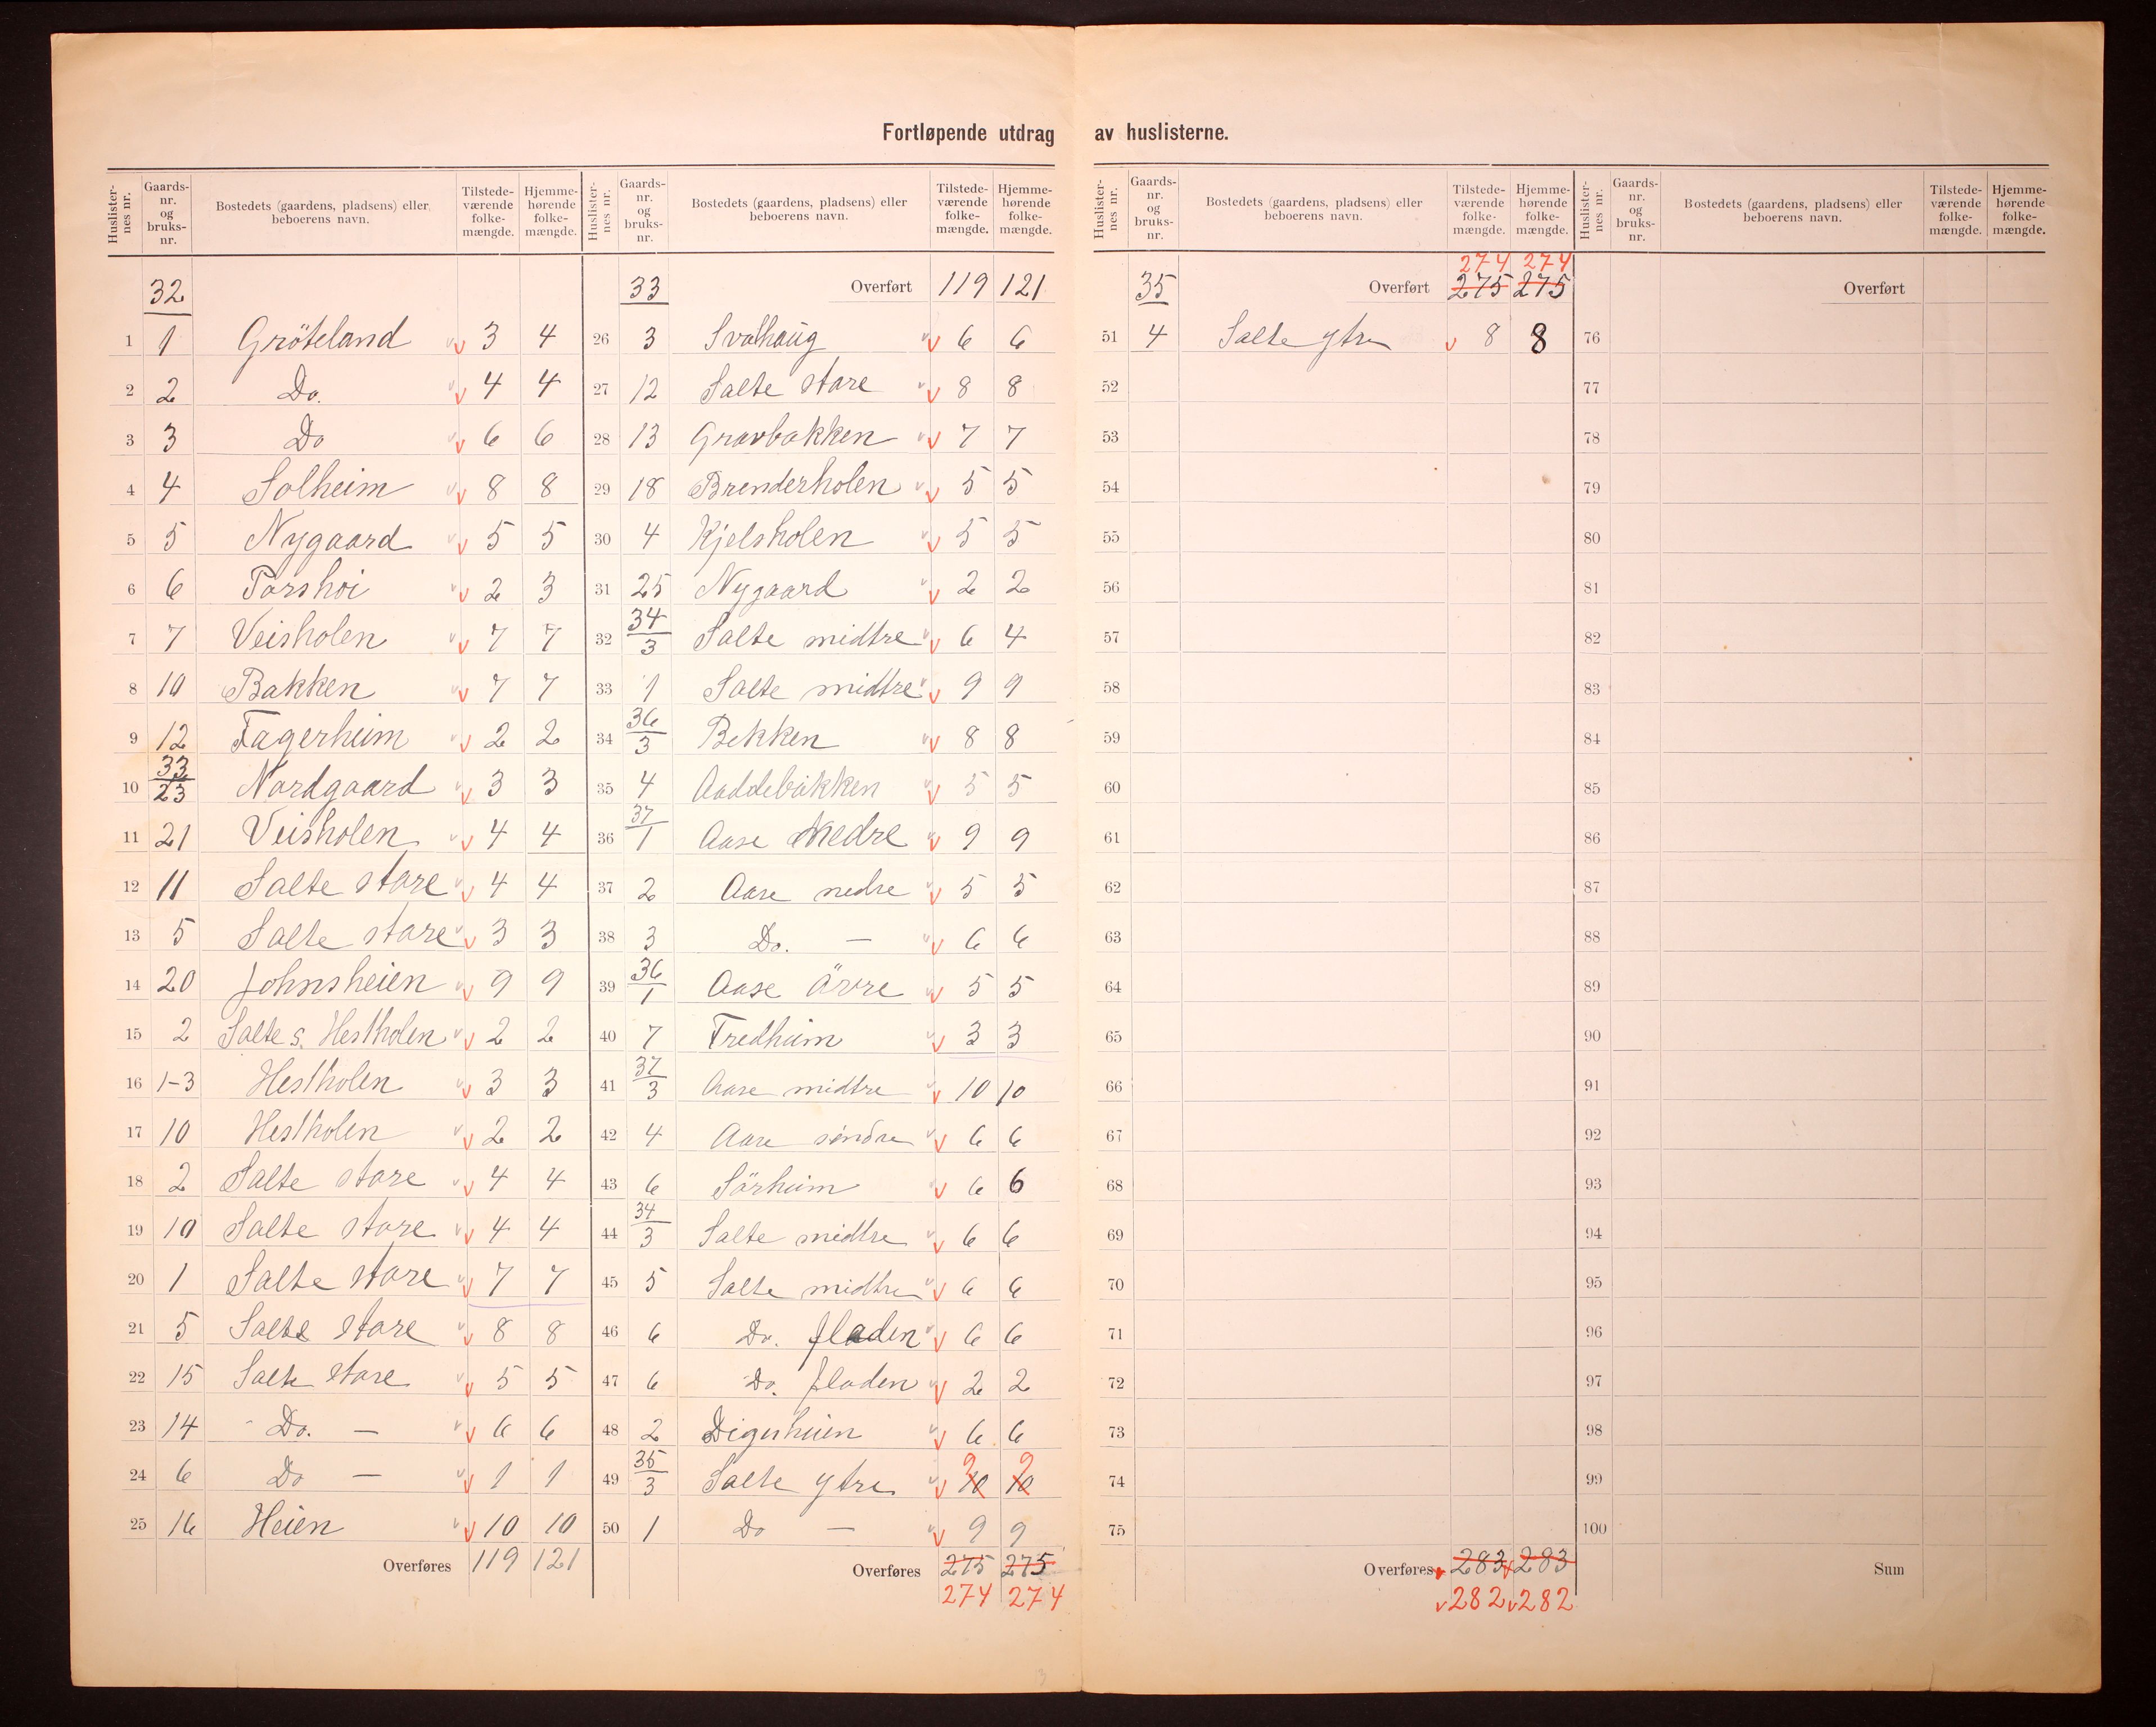 Fortløpende utdrag av huslisterne.
Huslisternes nr. Gaardsnr. og bruksnr. Bostedets (gaardens, pladsens) eller beboerens navn. Tilstedeværende folkemængde. Hjemmehørende folkemængde.
32
1 1 Gröteland v v 3 4
2 2 Do. v v 4 4
3 3 Do v v 6 6
4 4 Solheim v v 8 8
5 5 Nygaard v v 5 5
6 6 Torshoi v v 2 3
7 7 Veisholen v v 7 7
8 10 Bakken v v 7 7
9 12 Fagerheim v v 2 2
10 33/23 Nordgaard v v 3 3
11 21 Veisholen v v 4 4
12 11 Salte store v v 4 4
13 5 Salte store v v 3 3
14 20 Johnsheien v v 9 9
15 2 Salte s. Hestholen v v 2 2
16 1-3 Hestholen v v 3 3
17 10 Hestholen v v 2 2
18 2 Salte store v v 4 4
19 10 Salte store v v 4 4
20 1 Salte store v v 7 7
21 5 Salte store v v 8 8
22 15 Salte store v v 5 5
23 14 Do. — v v 6 6
24 6 Do — v v 1 1
25 16 Heien v v 10 10
Overføres 119 121
Huslisternes nr. Gaardsnr. og bruksnr. Bostedets (gaardens, pladsens) eller beboerens navn. Tilstedeværende folkemængde. Hjemmehørende folkemængde.
33 Overført 119 121
26 3 Svalhaug v v 6 6
27 12 Salte store v v 8 8
28 13 Gravbakken v v 7 7
29 18 Brenderholen v v 5 5
30 4 Kjelsholen v v 5 5
31 25 Nygaard v v 2 2
32 34/3 Salte midtre v v 6 4
33 1 Salte midtre v v 9 9
34 36/3 Bekken v v 8 8
35 4 Aaddebakken v v 5 5
36 37/1 Aase nedre v v 9 9
37 2 Aase nedre v v 5 5
38 3 Do. — v v 6 6
39 36/1 Aase övre v v 5 5
40 7 Fredheim v v 3 3
41 37/3 Aase midtre v v 10 10
42 4 Aase söndre v v 6 6
43 6 Sörheim v v 6 6
44 34/3 Salte midtre v v 6 6
45 5 Salte midtre v v 6 6
46 6 Do. fladen v v 6 6
47 6 Do. fladen v v 2 2
48 2 Digerheien v v 6 6
49 35/3 Salte ytre v v 10 9 10 9
50 1 Do — v v 9 9
Overføres 275 275
274 274
Huslisternes nr. Gaardsnr. og bruksnr. Bostedets (gaardens, pladsens) eller beboerens navn. Tilstedeværende folkemængde. Hjemmehørende folkemængde.
274 274
35 Overført 275 275
51 4 Salte ytre v 8 8
52
53
54
55
56
57
58
59
60
61
62
63
64
65
66
67
68
69
70
71
72
73
74
75
Overføres v 283 v 283
v 282 v 282
Huslisternes nr. Gaardsnr. og bruksnr. Bostedets (gaardens, pladsens) eller beboerens navn. Tilstedeværende folkemængde. Hjemmehørende folkemængde.
Overført
76
77
78
79
80
81
82
83
84
85
86
87
88
89
90
91
92
93
94
95
96
97
98
99
100
Sum